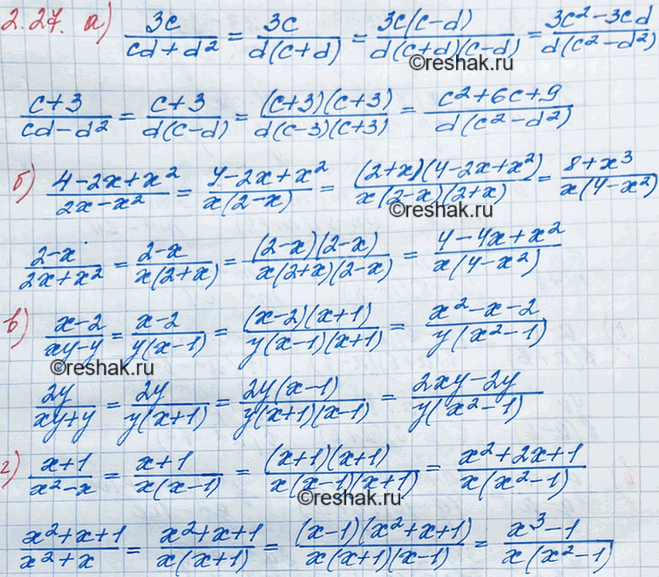 2.27. а) 3c/(cd+d²) = 3c/(d(c+d)) = 3c(c-d)/(d(c+d)(c-d)) = (3c²-3cd)/(d(c²-d²))
(c+3)/(cd-d²) = (c+3)/(d(c-d)) = (c+3)(c+3)/(d(c-3)(c+3)) = (c²+6c+9)/(d(c²-d²))
б) (4-2x+x²)/(2x-x²) = (4-2x+x²)/(x(2-x)) = (2+x)(4-2x+x²)/(x(2-x)(2+x)) = (8+x³)/(x(4-x²))
©reshak.ru
(2-x)/(2x+x²) = (2-x)/(x(2+x)) = (2-x)(2-x)/(x(2+x)(2-x)) = (4-4x+x²)/(x(4-x²))
в) (x-2)/(xy-y) = (x-2)/(y(x-1)) = (x-2)(x+1)/(y(x-1)(x+1)) = (x²-x-2)/(y(x²-1))
©reshak.ru
2y/(xy+y) = 2y/(y(x+1)) = 2y(x-1)/(y(x+1)(x-1)) = (2xy-2y)/(y(x²-1))
г) (x+1)/(x²-x) = (x+1)/(x(x-1)) = (x+1)(x+1)/(x(x-1)(x+1)) = (x²+2x+1)/(x(x²-1))
©reshak.ru
(x²+x+1)/(x²+x) = (x²+x+1)/(x(x+1)) = (x-1)(x²+x+1)/(x(x+1)(x-1)) = (x³-1)/(x(x²-1))